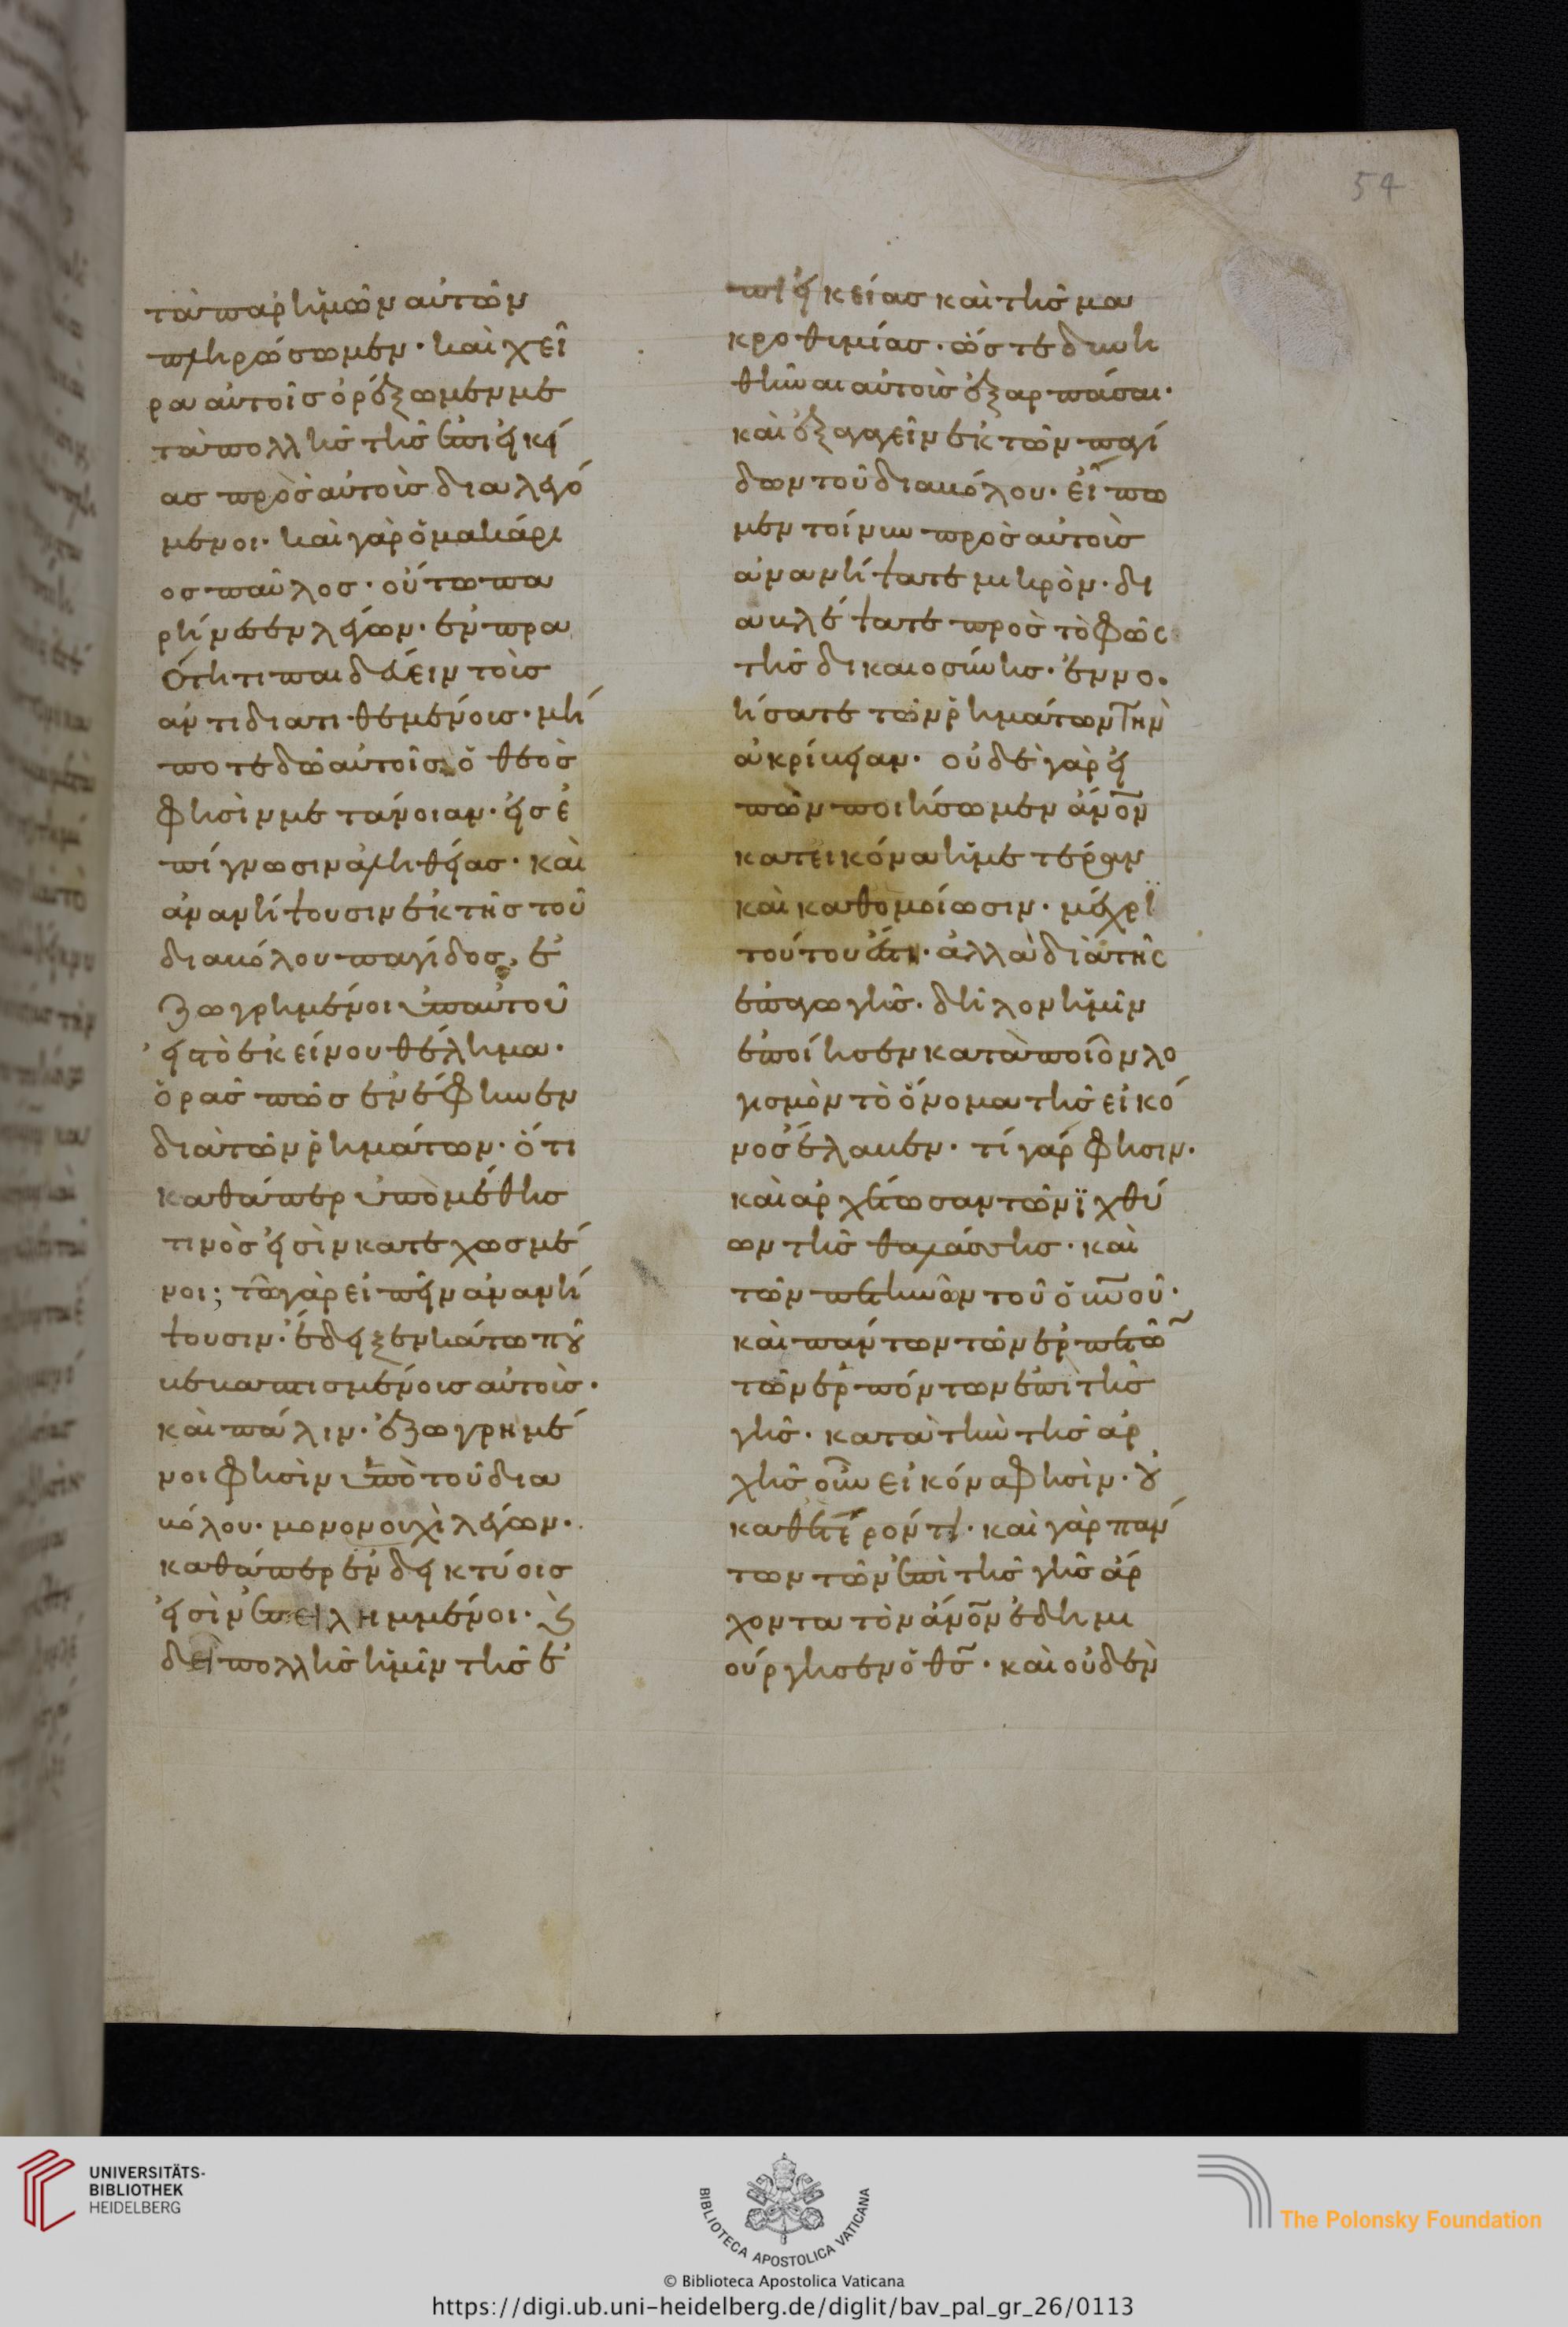 54
τὰ παρ ἡμῶν αὐτῶν
πληρώσωμεν· καὶ χεῖ
ρα αὐτοῖς ὀρέξωμεν με
τὰ πολλῆς τῆς ἐπιεικεί
ας πρὸς αὐτοὺς διαλεγό
μενοι· καὶ γὰρ ὁ μακάρι
ος παῦλος· οὕτω πα
ρήνεσεν λέγων· ἐν πρα
ότητι παιδεύειν τοὺς
ἀντιδιατιθεμένους· μή
ποτε δῶ αὐτοῖς ὁ θεὸς
φησὶν μετάνοιαν· εἰς ἐ
πίγνωσιν ἀληθείας· καὶ
ἀνανήψουσιν ἐκ τῆς τοῦ
διαβόλου παγίδος, ἐ
ζωγρημένοι ὑπ αὐτοῦ
εἰς τὸ ἐκείνου θέλημα·
ὅρας πῶς ἐνέφηνεν
διὰ τῶν ῥημάτων· ὅτι
καθάπερ ὑπὸ μέθης
τινὸς εἰσὶν κατεχωσμέ
νοι; τῶ γὰρ εἰπεῖν ἀνανή
ψουσιν· ἔδειξεν κάτω που
βεβαπτισμένους αὐτούς·
καὶ πάλιν· ἐζωγρημέ
νοι φησὶν ὑπὸ τοῦ δια
βόλου· μονονουχὶ λέγων·
καθάπερ ἐν δικτύοις
εἰσὶν ἐπειλημμένοι· καὶ
δεῖ πολλῆς ἡμῖν τῆς ἐ
πιεικείας καὶ τῆς μα
κροθυμίας· ὥστε δυνη
θῆναι αὐτοὺς ἐξαρπάσαι·
καὶ ἐξαγαγεῖν ἐκ τῶν παγί
δων τοῦ διαβόλου· εἴπω
μεν τοίνυν πρὸς αὐτοὺς
ἀνανήψατε μικρὸν· δι
αβλέψατε πρὸς τὸ φῶς
τῆς δικαιοσύνης· ἐννο
ήσατε τῶν ῥημάτων τὴν
ἀκρίβειαν· οὐδὲ γὰρ εἰ
πὼν ποιήσωμεν ἄνον
κατ εἰκόνα ἡμετέραν
καὶ καθ ὁμοίωσιν· μέχρι
τούτου ἔστη· ἀλλὰ διὰ τῆς
ἐπαγωγῆς· δῆλον ἡμῖν
ἐποίησεν κατὰ ποῖον λο
γισμὸν τὸ ὄνομα τῆς εἰκό
νος ἔλαβεν· τί γάρ φησιν·
καὶ ἀρχέτωσαν τῶν ἰχθύ
ων τῆς θαλάσσης· καὶ
τῶν πετηνῶν τοῦ οὐνοῦ·
καὶ πάντων τῶν ἑρπετῶ
τῶν ἑρπόντων ἐπὶ τῆς
γῆς· κατὰ τὴν τῆς ἀρ
χῆς οὖν εἰκόνα φησὶν· οὐ
καθ ἕτερόν τι· καὶ γὰρ πάν
των τῶν ἐπὶ τῆς γῆς ἄρ
χοντα τὸν ἄνον ἐδημι
ούργησεν ὁ θς· καὶ οὐδὲν
UNIVERSITÄTS-
BIBLIOTHEK
HEIDELBERG
BIBLIOTECA APOSTOLICA VATICANA
The Polonsky Foundation
© Biblioteca Apostolica Vaticana
https://digi.ub.uni-heidelberg.de/diglit/bav_pal_gr_26/0113